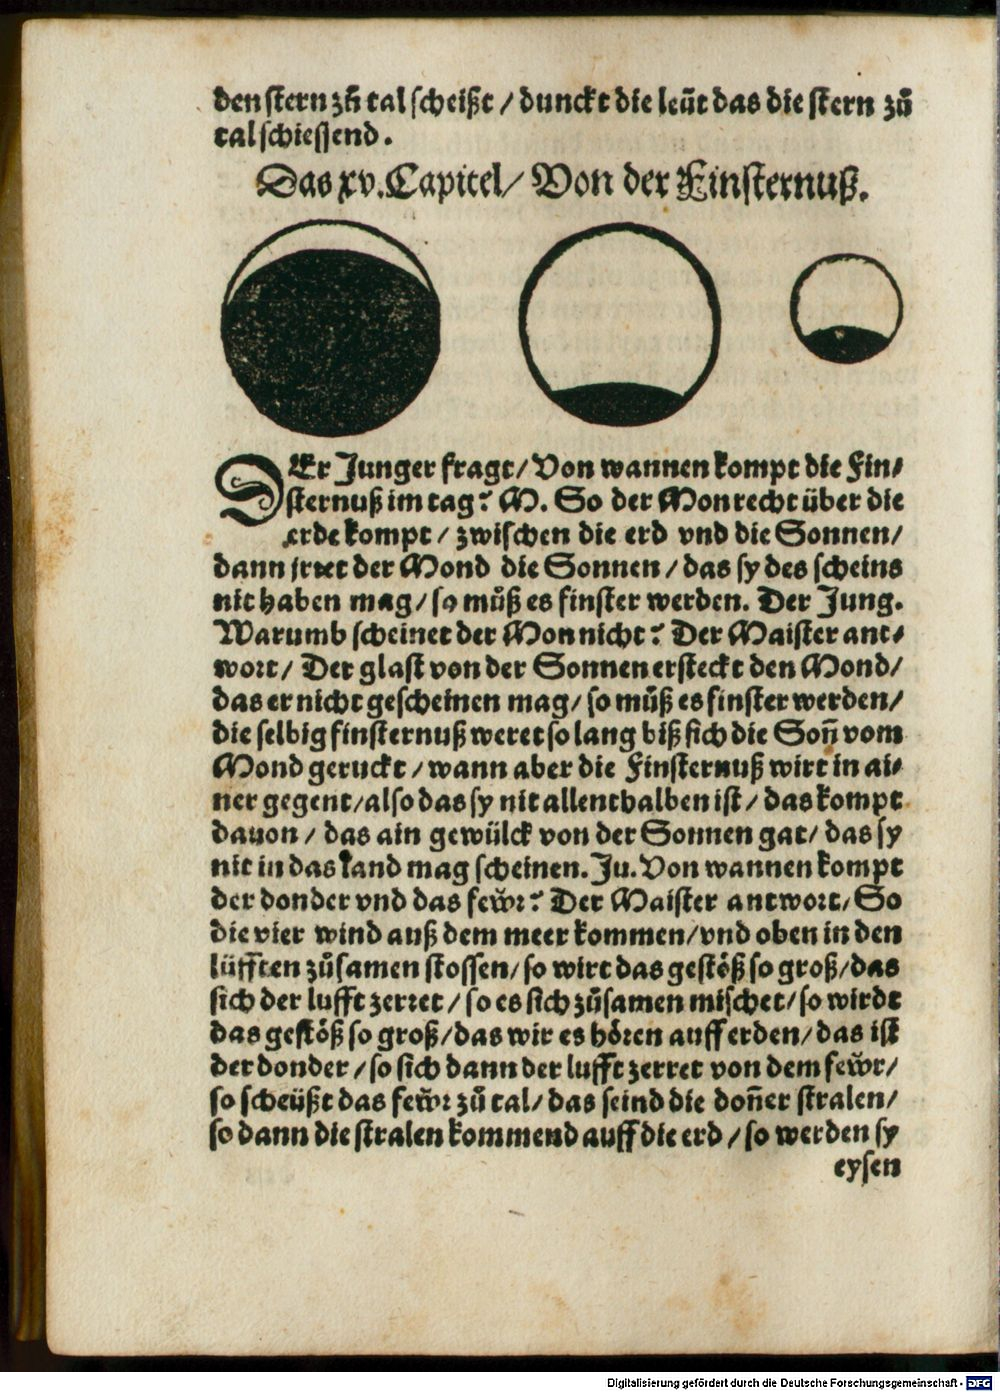 den stern zů tal scheißt / dunckt die leüt das die stern zů
tal schiessend.
Das xv. Capitel / Von der Finsternuß.
DEr Junger fragt / Von wannen kompt die Fin⸗
sternuß im tag? M. So der Mon recht über die
erde kompt / zwischen die erd vnd die Sonnen /
dann irret der Mond die Sonnen / das sy des scheins
nit haben mag / so můß es finster werden. Der Jung.
Warumb scheinet der Mon nicht? Der Maister ant⸗
wort / Der glast von der Sonnen ersteckt den Mond /
das er nicht gescheinen mag / so můß es finster werden /
die selbig finsternuß weret so lang biß sich die Soñ vom
Mond geruckt / wann aber die Finsternuß wirt in ai⸗
ner gegent / also das sy nit allenthalben ist / das kompt
dauon / das ain gewülck von der Sonnen gat / das sy
nit in das land mag scheinen. Ju. Von wannen kompt
der donder vnd das fewr? Der Maister antwort / So
die vier wind auß dem meer kommen / vnd oben in den
lüfften zůsamen stossen / so wirt das gestöß so groß / das
sich der lufft zerret / so es sich zůsamen mischet / so wirdt
das gestöß so groß / das wir es hören auff erden / das ist
der donder / so sich dann der lufft zerret von dem fewr /
so scheüßt das fewr zů tal / das seind die doñer stralen /
so dann die stralen kommend auff die erd / so werden sy
eysen
Digitalisierung gefördert durch die Deutsche Forschungsgemeinschaft - DFG